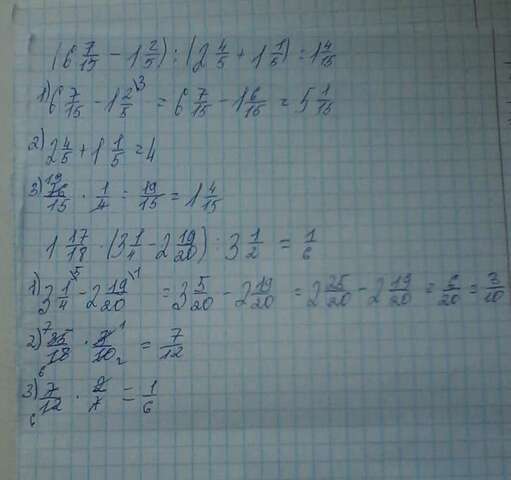 (6 7/15 - 1 2/5) : (2 4/5 + 1 1/5) = 1 4/15
1) 6 7/15 - 1 2/5 \3 = 6 7/15 - 1 6/15 = 5 1/15
2) 2 4/5 + 1 1/5 = 4
3) 19 76/15 · 1/4 = 19/15 = 1 4/15
1 17/18 · (3 1/4 - 2 19/20) : 3 1/2 = 1/6
1) 3 1/4 \5 - 2 19/20 \1 = 3 5/20 - 2 19/20 = 2 25/20 - 2 19/20 = 6/20 = 3/10
2) 7 35/18 6 · 3/10 1 2 = 7/12
3) 7/12 6 · 2/7 = 1/6